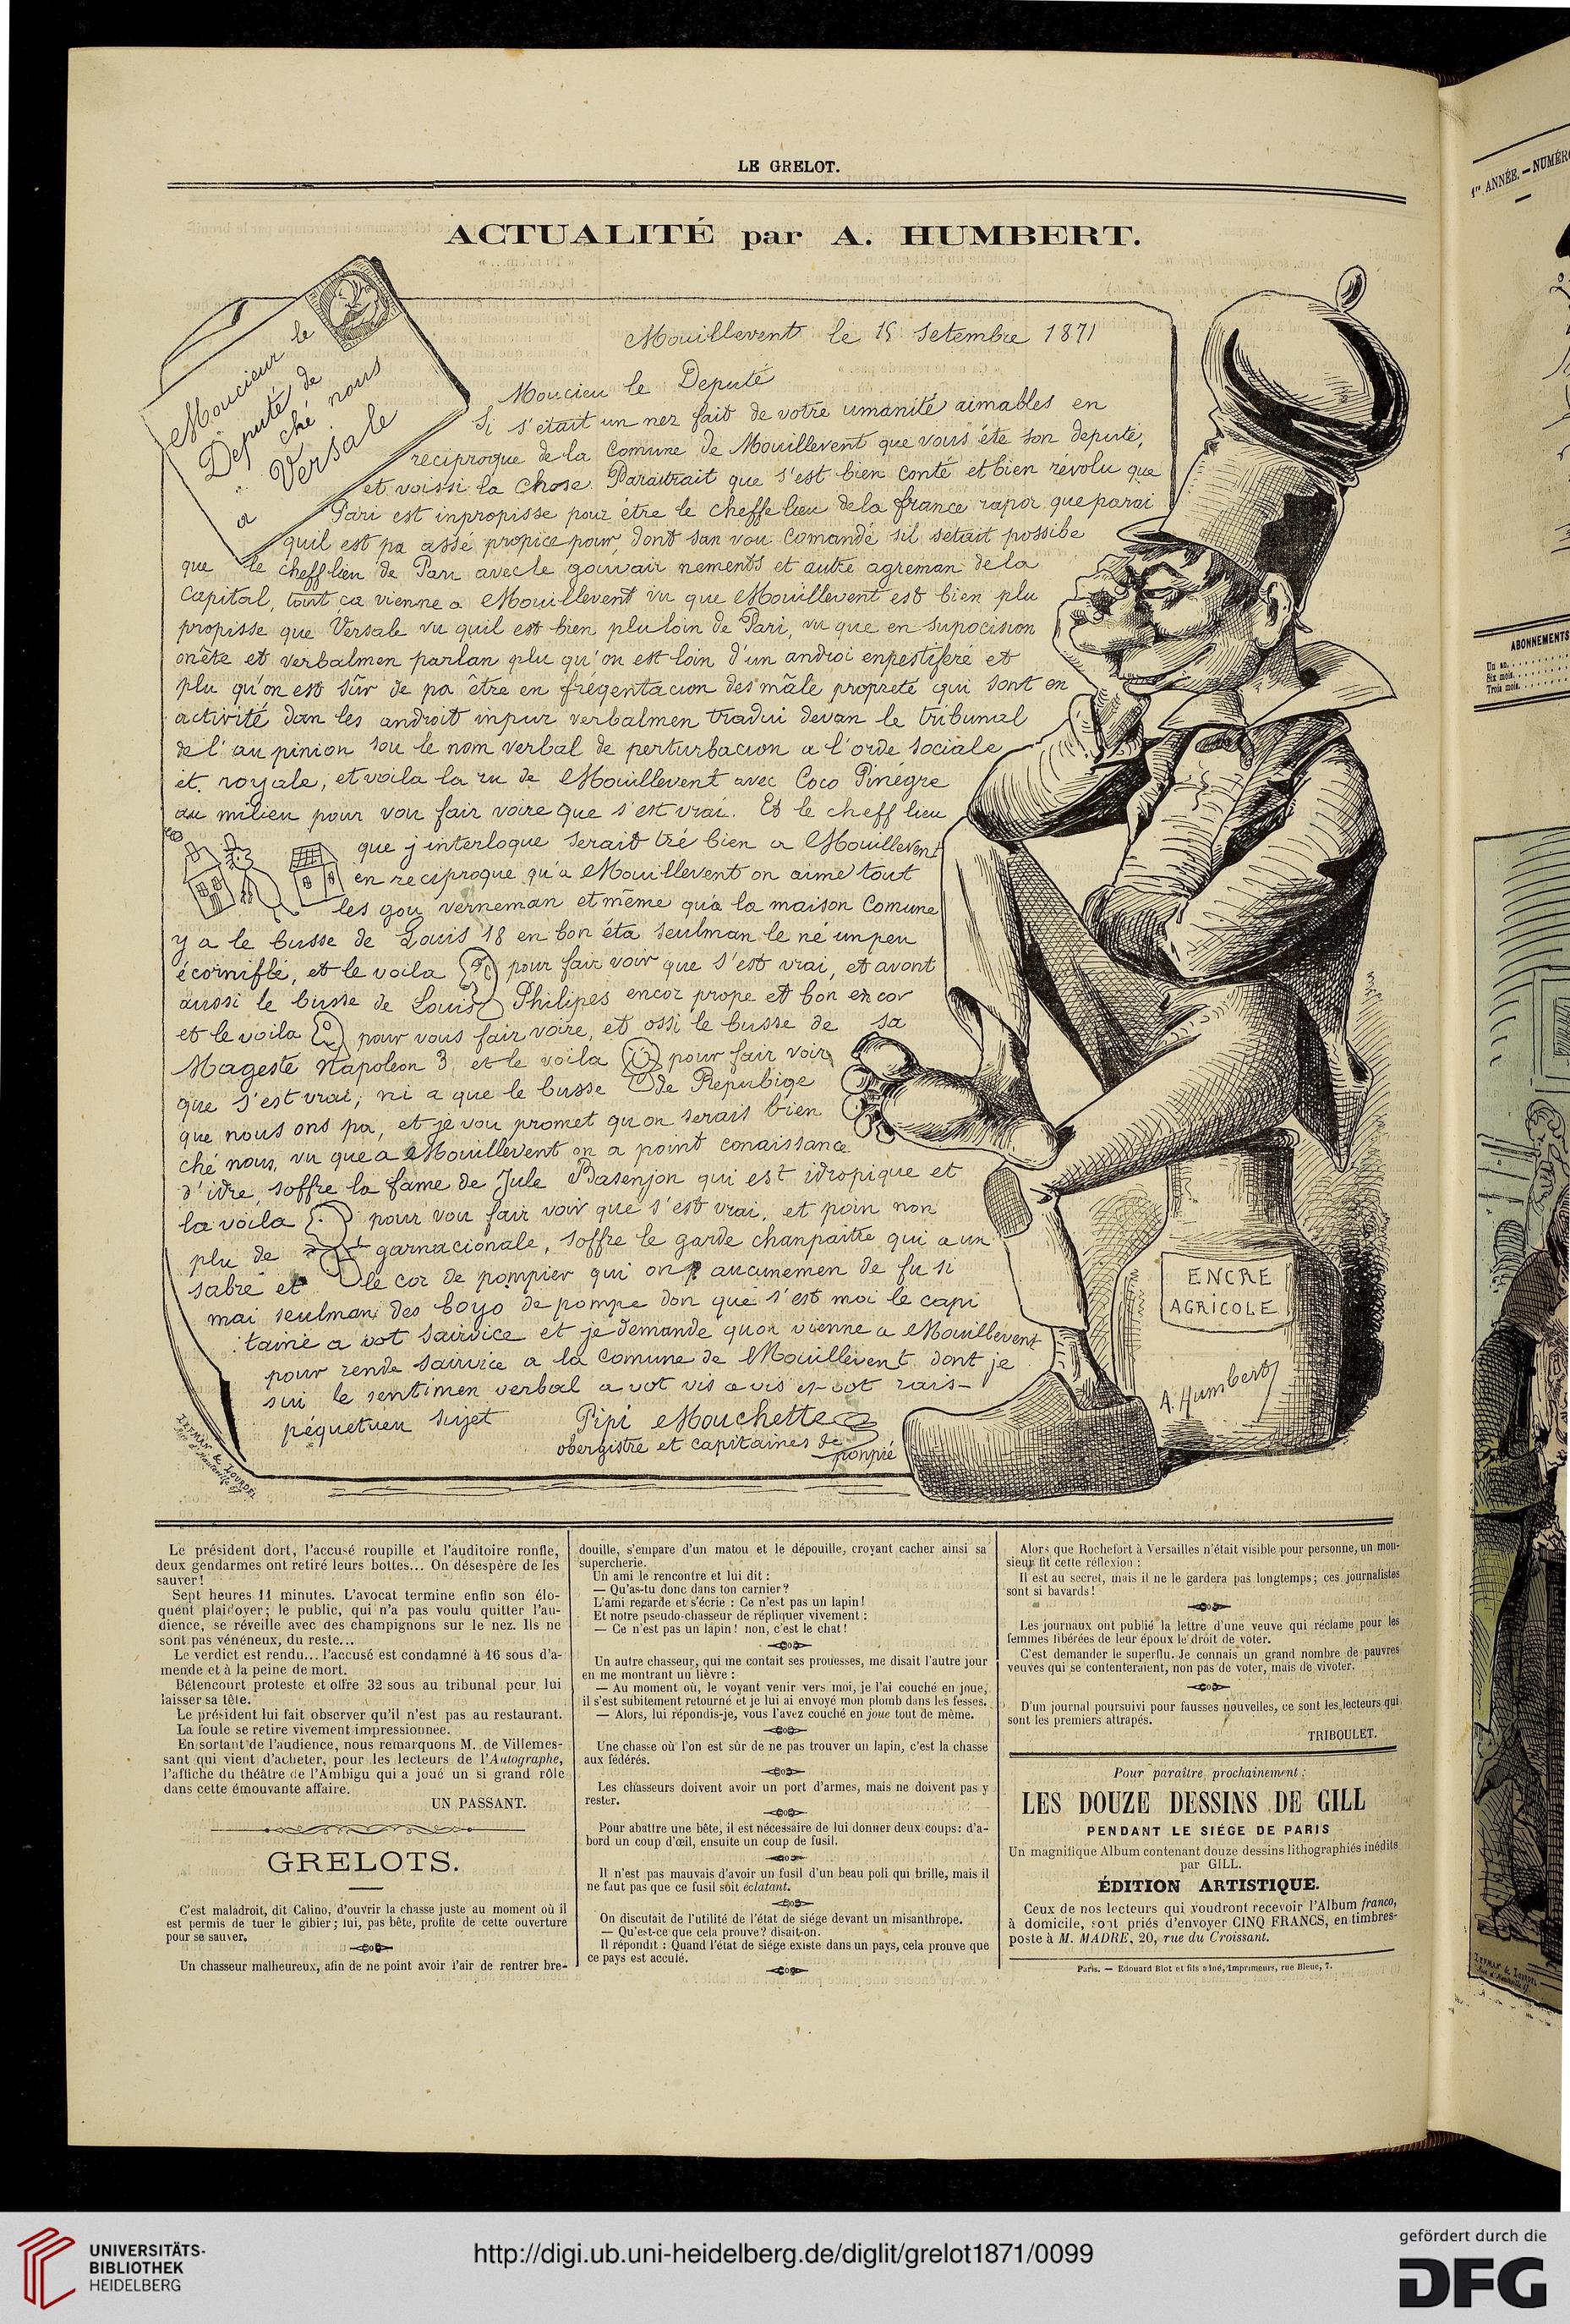 LE GRELOT.
ACTUALITÉ par A. HUMBERT.
Moucieur le
Deputé de
ché nous
a Versale
Mouillevent le 15 Setembre 1871
Moucieu le Deputé
Si s'était un nez fait de votre umanité aimables en
reciproque de la Comune de Mouillevent que vous éte son deputé,
et voissi la chose. Paraitrait que s'est bien conté et bien révolu que
Pari est inpropisse pour étre le cheffe lieu de la france rapor que parai
quil est pa assé propice pour, dont san vou comandé sil sétait possibe
que le cheff lieu de Pari avec le gouvair nements et autre agreman de la
Capital, tout ça vienne a Mouillevent vu que Mouillevent est bien plu
propisse que Versale vu quil est bien plu loin de Pari, vu que en supocision
onête et verbalmen parlan plu qu'on est loin d'un androi enpestiferé et
plu qu'on est sûr de pa être en fréqentacion des mâle propreté qui sont en
activité dan les androit inpur verbalmen tradui devan le tribunal
de l'au pinion sou le nom verbal de perturbacion a l'orde sociale
et royale, et voila la ru de Mouillevent avec Coco Pinègre
au milieu pour vou fair voire que s'est vrai. Et le cheff lieu
que j'interloque serait tré bien a Mouillevent
en reciproque qu'a Mouillevent on aime tout
les gou verneman et même qu'a la maison Comune
y a le busse de Louis 18 en bon éta seulman le né un peu
écorniflé, et le voila pour fair voir que s'est vrai, et avont
aussi le busse de Louis Philipes encor prope et bon encor
et le voila pour vous fair voire, et ossi le busse de sa
Magesté Napoleon 3, et le voila pour fair voir
que s'est vrai, ni a que le busse de Repubige
que nous ons pa, et je vou promet qu'on serais bien
ché nous, vu que a Mouillevent on a point conaissance
d'idre, soffre la fame de Jule Basenjon qui est idropique et
la voila pour vou fair voir que s'est vrai, et poin non
plu de garnacionale, soffre le garde chanpaitre qui a un
sabre et le cor de pompier qui on aucunemen de fu si
mai seulman des boyo de pompe don que s'est moi le capi
taine a vot sairvice et je demande qu'on vienne a Mouillevent
pour rende sairvice a la Comune de Mouillevent dont je
sui le sentimen verbal a vot vis a vis et vot rais-
péquetueu sujet
Pipi Mouchette
obergistre et capitaines de
ponpié
ENCRE
AGRICOLE
A. Humbert
LEFMAN & LOURDEL
Le président dort, l'accusé roupille et l'auditoire ronfle,
deux gendarmes ont retiré leurs bottes... On désespère de les
sauver!
Sept heures 11 minutes. L'avocat termine enfin son élo-
quent plaidoyer; le public, qui n'a pas voulu quitter l'au-
dience, se réveille avec des champignons sur le nez. Ils ne
sont pas vénéneux, du reste...
Le verdict est rendu... l'accusé est condamné à 16 sous d'a-
mende et à la peine de mort.
Bétencourt proteste et offre 32 sous au tribunal pour lui
laisser sa tête.
Le président lui fait observer qu'il n'est pas au restaurant.
La foule se retire vivement impressionnée.
En sortant de l'audience, nous remarquons M. de Villemes-
sant qui vient d'acheter, pour les lecteurs de l'Autographe,
l'affiche du théâtre de l'Ambigu qui a joué un si grand rôle
dans cette émouvante affaire.
UN PASSANT.
GRELOTS.
C'est maladroit, dit Calino, d'ouvrir la chasse juste au moment où il
est permis de tuer le gibier; lui, pas bête, profite de cette ouverture
pour se sauver.
Un chasseur malheureux, afin de ne point avoir l'air de rentrer bre-
douille, s'empare d'un matou et le dépouille, croyant cacher ainsi sa
supercherie.
Un ami le rencontre et lui dit :
— Qu'as-tu donc dans ton carnier?
L'ami regarde et s'écrie : Ce n'est pas un lapin!
Et notre pseudo-chasseur de répliquer vivement :
— Ce n'est pas un lapin! non, c'est le chat!
Un autre chasseur, qui me contait ses prouesses, me disait l'autre jour
en me montrant un lièvre :
— Au moment où, le voyant venir vers moi, je l'ai couché en joue,
il s'est subitement retourné et je lui ai envoyé mon plomb dans les fesses.
— Alors, lui répondis-je, vous l'avez couché en joue tout de même.
Une chasse où l'on est sûr de ne pas trouver un lapin, c'est la chasse
aux fédérés.
Les chasseurs doivent avoir un port d'armes, mais ne doivent pas y
rester.
Pour abattre une bête, il est nécessaire de lui donner deux coups: d'a-
bord un coup d'œil, ensuite un coup de fusil.
Il n'est pas mauvais d'avoir un fusil d'un beau poli qui brille, mais il
ne faut pas que ce fusil soit éclatant.
On discutait de l'utilité de l'état de siége devant un misanthrope.
— Qu'est-ce que cela prouve? disait-on.
Il répondit : Quand l'état de siége existe dans un pays, cela prouve que
ce pays est acculé.
Alors que Rochefort à Versailles n'était visible pour personne, un mon-
sieur fit cette réflexion :
Il est au secret, mais il ne le gardera pas longtemps; ces journalistes
sont si bavards!
Les journaux ont publié la lettre d'une veuve qui réclame pour les
femmes libérées de leur époux le droit de voter.
C'est demander le superflu. Je connais un grand nombre de pauvres
veuves qui se contenteraient, non pas de voter, mais de vivoter.
D'un journal poursuivi pour fausses nouvelles, ce sont les lecteurs qui
sont les premiers attrapés.
TRIBOULET.
Pour paraître prochainement :
LES DOUZE DESSINS DE GILL
PENDANT LE SIÉGE DE PARIS
Un magnifique Album contenant douze dessins lithographiés inédits
par GILL.
ÉDITION ARTISTIQUE.
Ceux de nos lecteurs qui voudront recevoir l'Album franco,
à domicile, sont priés d'envoyer CINQ FRANCS, en timbres-
poste à M. MADRE, 20, rue du Croissant.
Paris. — Edouard Blot et fils aîné, Imprimeurs, rue Bleue, 7.
1re ANNÉE. — NUMÉRO
ABONNEMENTS
Un an
Six mois
Trois mois
LEFMAN & LOURDEL
UNIVERSITÄTS-
BIBLIOTHEK
HEIDELBERG
http://digi.ub.uni-heidelberg.de/diglit/grelot1871/0099
gefördert durch die
DFG